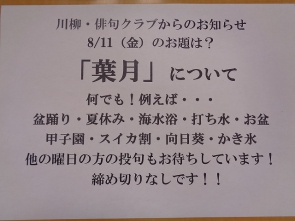 川柳・俳句クラブからのお知らせ
8/11（金）のお題は？
「葉月」について
何でも！例えば・・・
盆踊り・夏休み・海水浴・打ち水・お盆
甲子園・スイカ割・向日葵・かき氷
他の曜日の方の投句もお待ちしています！
締め切りなしです！！